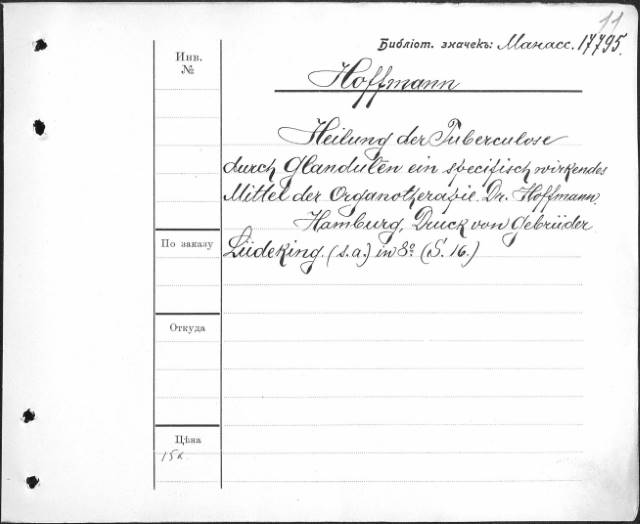 11
Библіот. значекъ: Манасс. 17795.
Инв.
№
Hoffmann
Heilung der Tuberculose
durch Glandulën ein specifisch wirkendes
Mittel der Organotherapie. Dr. Hoffmann.
Hamburg, Druck von Gebrüder
По заказу
Lüdeking. (s.a.) in 8º (S. 16.)
Откуда
Цѣна
15к